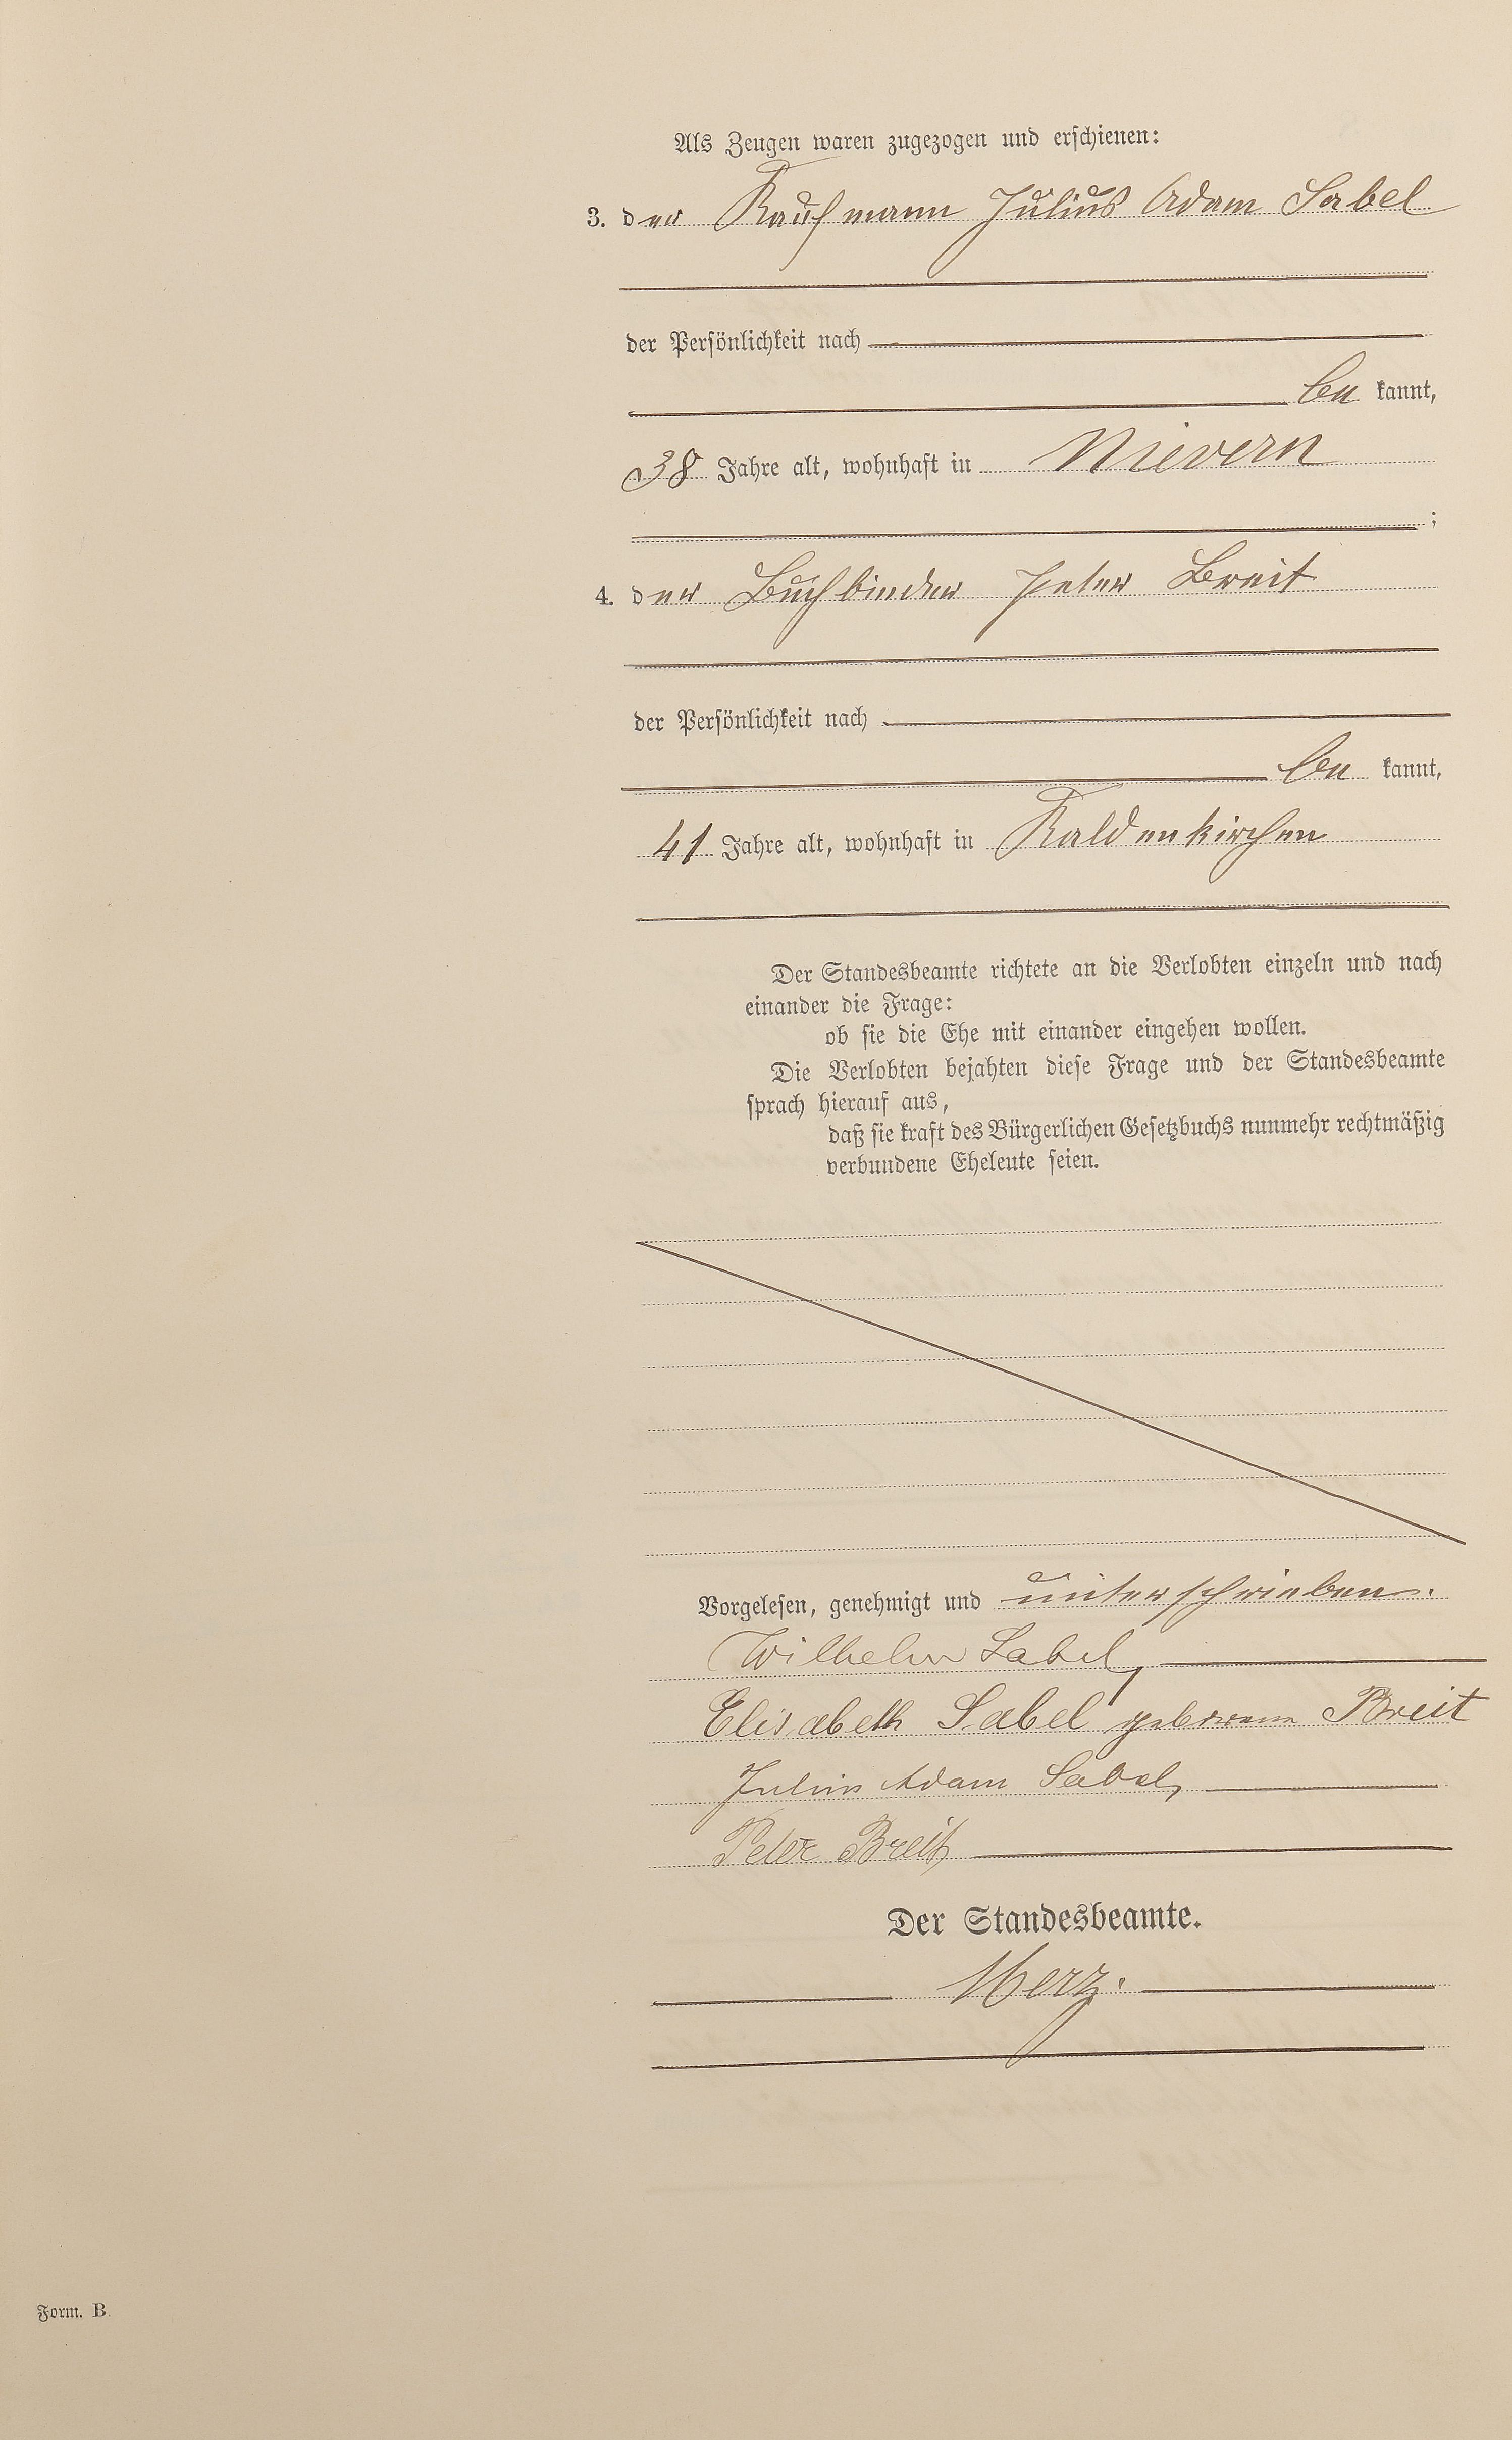 Als Zeugen waren zugezogen und erschienen:
3. der Kaufmann Julius Adam Sabel
der Persönlichkeit nach
be kannt,
38 Jahre alt, wohnhaft in Nievern
;
4. der Buchbinder Peter Breit
der Persönlichkeit nach
be kannt,
41 Jahre alt, wohnhaft in Kaldenkirchen
Der Standesbeamte richtete an die Verlobten einzeln und nach
einander die Frage:
ob sie die Ehe mit einander eingehen wollen.
Die Verlobten bejahten diese Frage und der Standesbeamte
sprach hierauf aus,
daß sie kraft des Bürgerlichen Gesetzbuchs nunmehr rechtmäßig
verbundene Eheleute seien.
Vorgelesen, genehmigt und unterschrieben.
Wilhelm Sabel,
Elisabeth Sabel geborene Breit
Julius Adam Sabel,
Peter Breit
Der Standesbeamte.
Merz.
Form. B